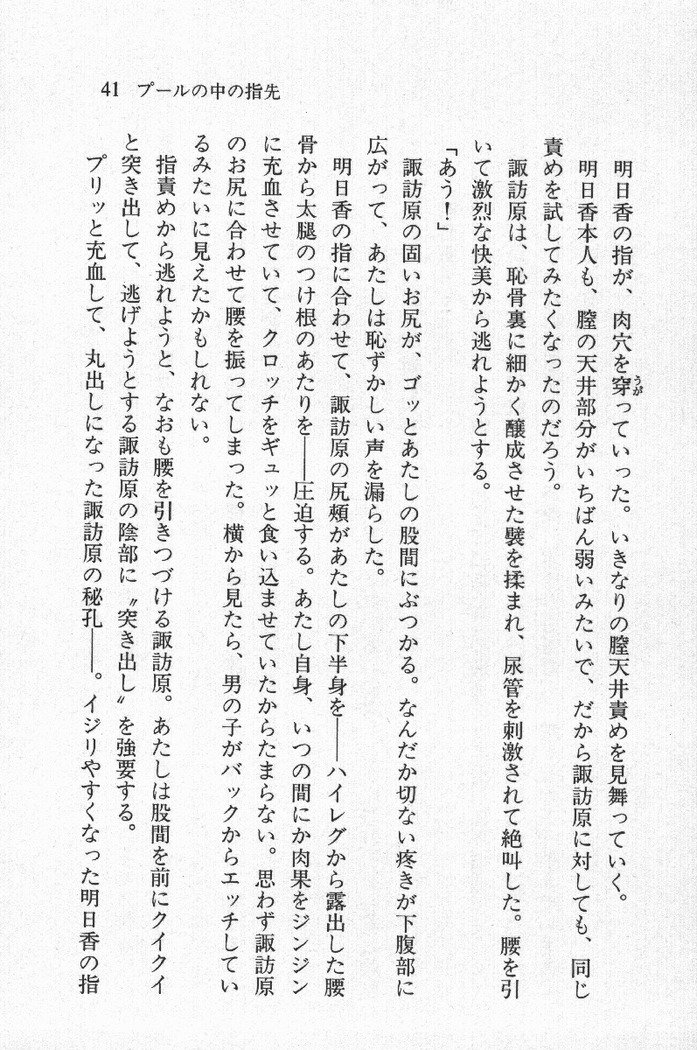 41 プールの中の指先
明日香の指が、肉穴を穿っていった。いきなりの膣天井責めを見舞っていく。
うが
明日香本人も、膣の天井部分がいちばん弱いみたいで、だから諏訪原に対しても、同じ
責めを試してみたくなったのだろう。
諏訪原は、恥骨裏に細かく醸成させた襞を揉まれ、尿管を刺激されて絶叫した。腰を引
いて激烈な快美から逃れようとする。
「あう！」
諏訪原の固いお尻が、ゴッとあたしの股間にぶつかる。なんだか切ない疼きが下腹部に
広がって、あたしは恥ずかしい声を漏らした。
明日香の指に合わせて、諏訪原の尻頰があたしの下半身を――ハイレグから露出した腰
骨から太腿のつけ根のあたりを――圧迫する。あたし自身、いつの間にか肉果をジンジン
に充血させていて、クロッチをギュッと食い込ませていたからたまらない。思わず諏訪原
のお尻に合わせて腰を振ってしまった。横から見たら、男の子がバックからエッチしてい
るみたいに見えたかもしれない。
指責めから逃れようと、なおも腰を引きつづける諏訪原。あたしは股間を前にクイクイ
と突き出して、逃げようとする諏訪原の陰部に〝突き出し〟を強要する。
プリッと充血して、丸出しになった諏訪原の秘孔――。イジリやすくなった明日香の指